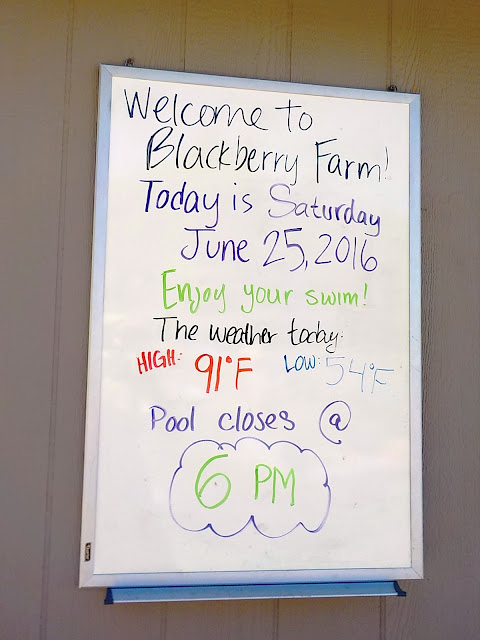 Welcome to
Blackberry Farm!
Today is Saturday
June 25, 2016
Enjoy your swim!
The weather today:
HIGH: 91°F LOW: 54°F
Pool closes @
6 PM